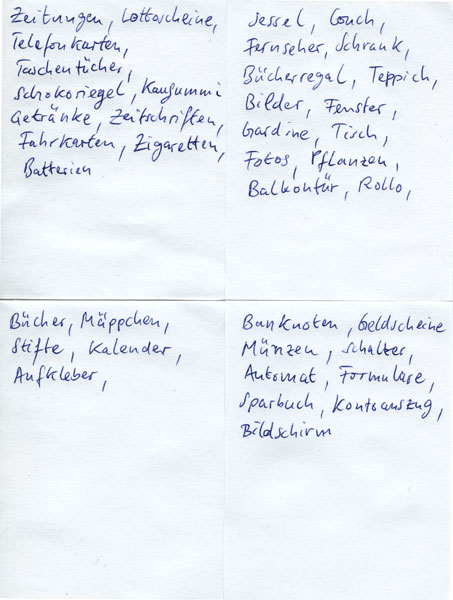 Zeitungen, Lottoscheine,
Telefonkarten,
Taschentücher,
Schokoriegel, Kaugummi
Getränke, Zeitschriften,
Fahrkarten, Zigaretten,
Batterien
Sessel, Couch,
Fernseher, Schrank,
Bücherregal, Teppich,
Bilder, Fenster,
Gardine, Tisch,
Fotos, Pflanzen,
Balkontür, Rollo,
Bücher, Mäppchen,
Stifte, Kalender,
Aufkleber,
Banknoten, Geldscheine
Münzen, Schalter,
Automat, Formulare,
Sparbuch, Kontoauszug,
Bildschirm